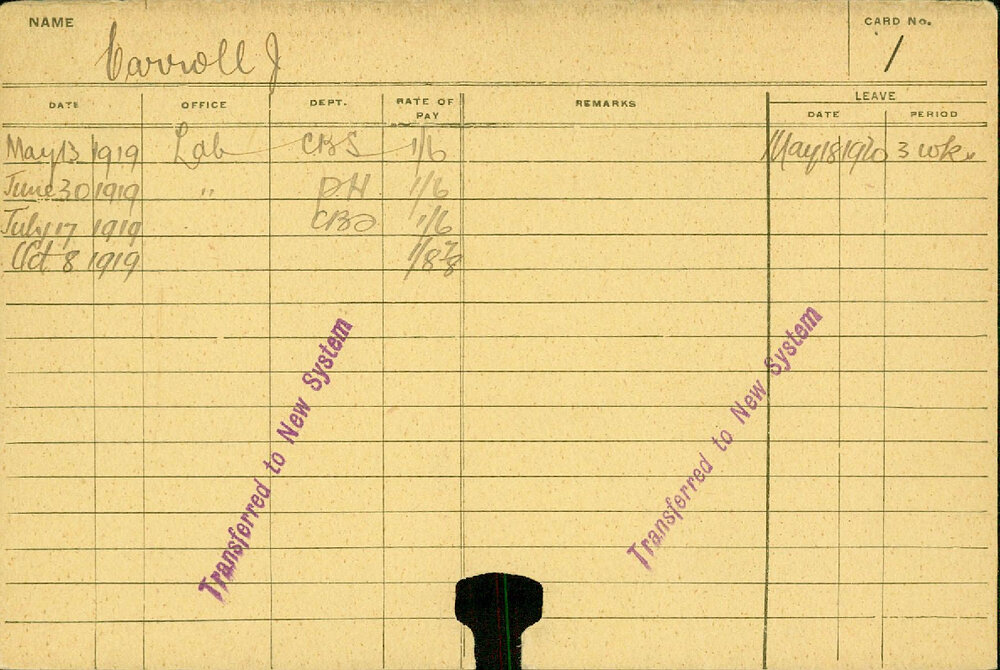 NAME
Carroll J
CARD No.
1
DATE OFFICE DEPT. RATE OF PAY REMARKS LEAVE
DATE PERIOD
May 13 1919 Lab CBS 1/6 May 18 1920 3 wk.
June 30 1919 " DH 1/6
July 17 1919 1/6
Oct 8 1919 1/8⅞
Transferred to New System
Transferred to New System